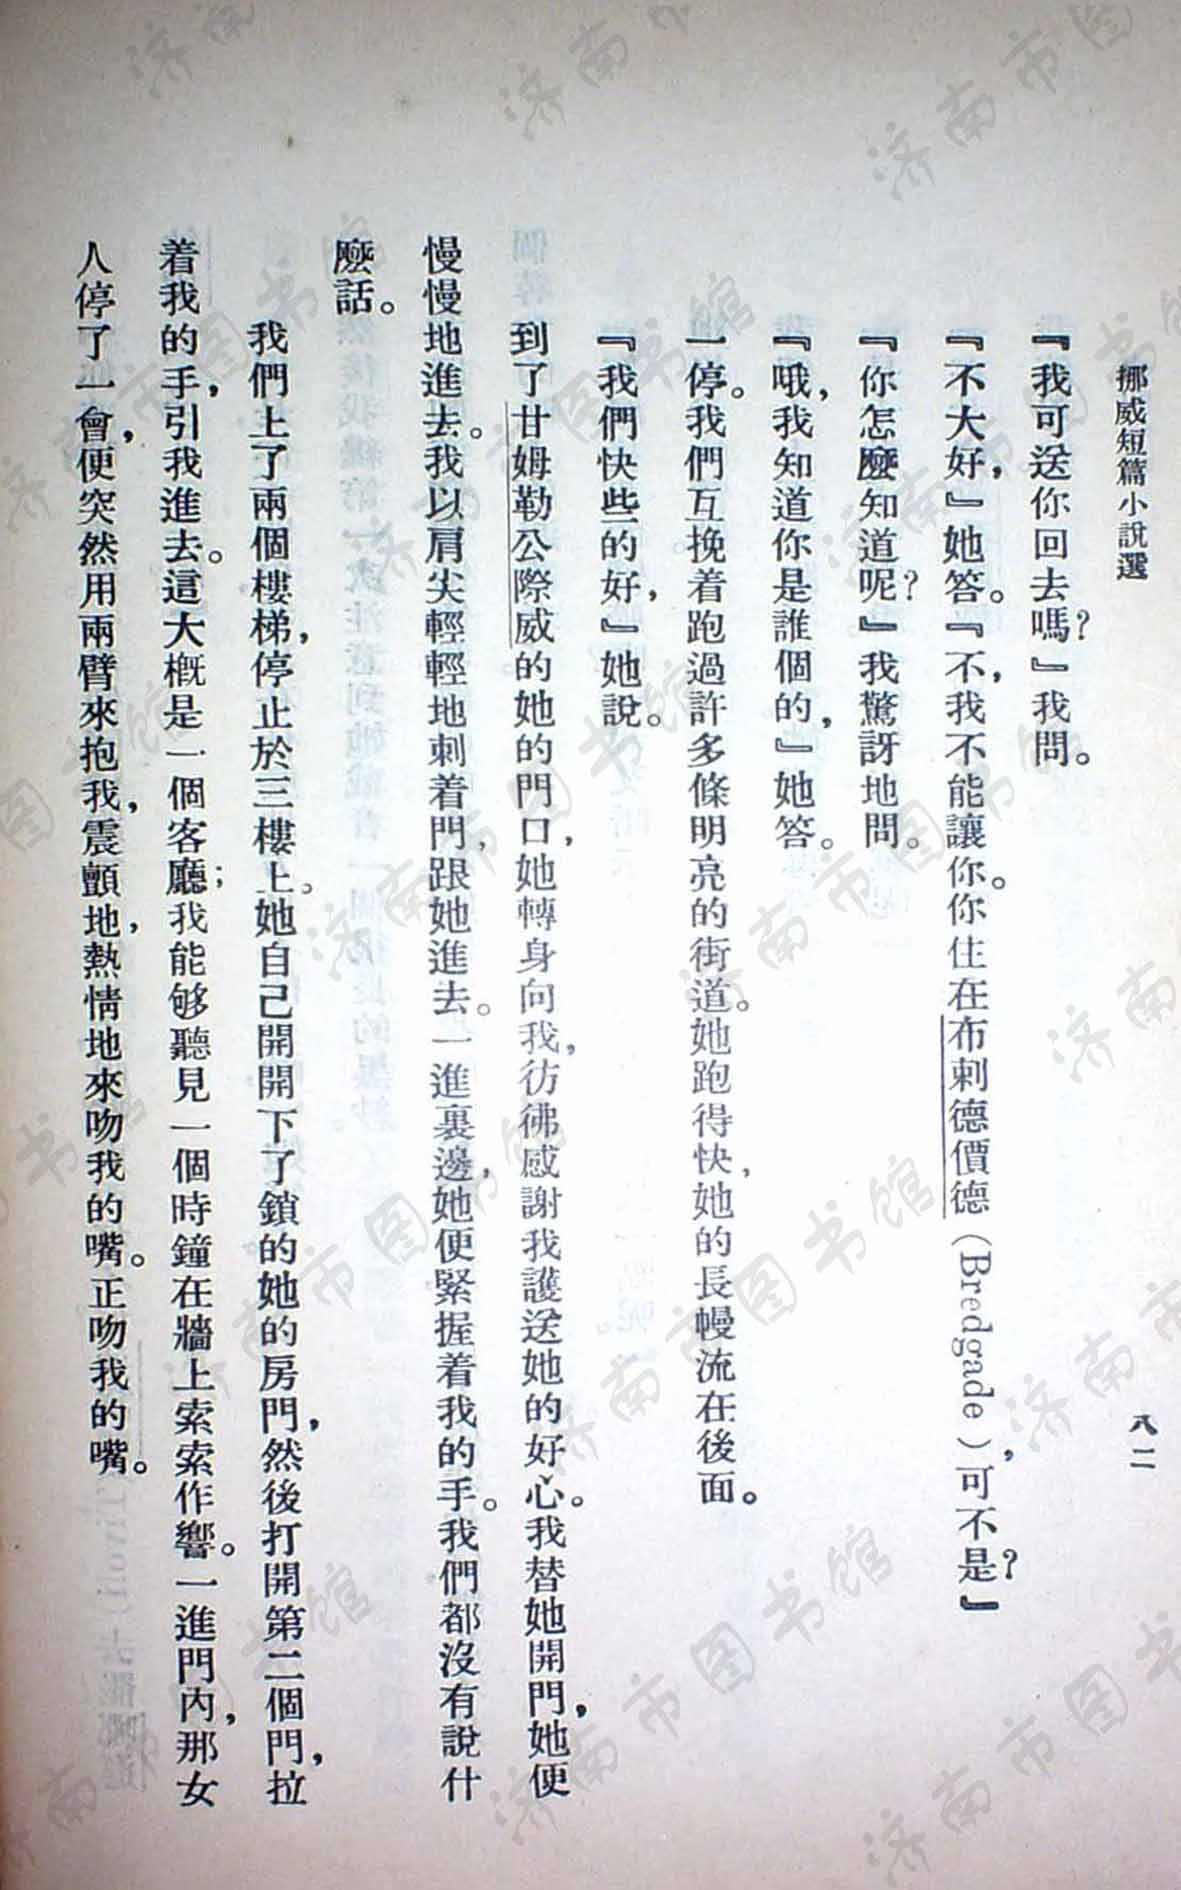 挪威短篇小說選
八二
『我可送你回去嗎？』我問。
『不大好，』她答。『不，我不能讓你。你住在布刺德價德（Bredgade），可不是？』
『你怎麼知道呢？』我驚訝地問。
『哦，我知道你是誰個的，』她答。
一停。我們互挽着跑過許多條明亮的街道。她跑得快，她的長幔流在後面。
『我們快些的好，』她說。
到了甘姆勒公際威的她的門口，她轉身向我，彷彿感謝我護送她的好心。我替她開門，她便
慢慢地進去。我以肩尖輕輕地刺着門，跟她進去。一進裏邊，她便緊握着我的手。我們都沒有說什
麼話。
我們上了兩個樓梯，停止於三樓上。她自己開開下了鎖的她的房門，然後打開第二個門，拉
着我的手，引我進去。這大概是一個客廳；我能够聽見一個時鐘在牆上索索作響。一進門內，那女
人停了一會，便突然用兩臂來抱我，震顫地，熱情地來吻我的嘴。正吻我的嘴。
济南市图书馆